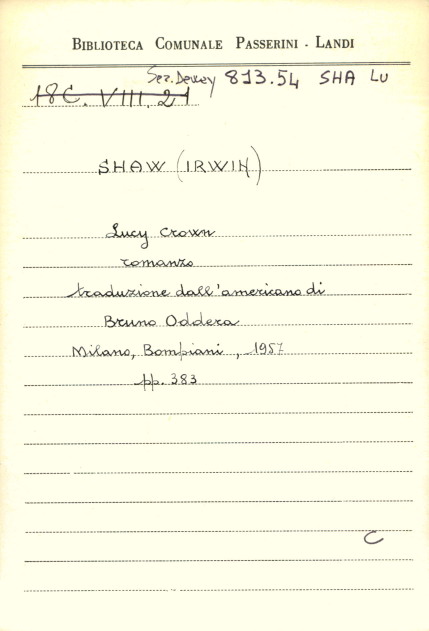 BIBLIOTECA COMUNALE PASSERINI - LANDI
Sez. Dewey 813.54 SHA Lu
18C. VIII. 21
SHAW (IRWIN)
Lucy Crown
romanzo
traduzione dall'americano di
Bruno Oddera
Milano, Bompiani, 1957
pp. 383
C